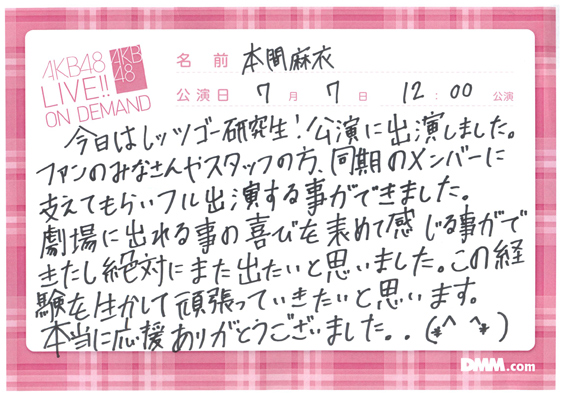 AKB48
LIVE!!
ON DEMAND
AKB
48
名前 本間麻衣
公演日 7月7日 12:00 公演
今日はレッツゴー研究生!公演に出演しました。
ファンのみなさんやスタッフの方、同期のメンバーに
支えてもらいフル出演する事ができました。
劇場に出れる事の喜びを改めて感じる事がで
きたし絶対にまた出たいと思いました。この経
験を生かして頑張っていきたいと思います。
本当に応援ありがとうございました。.(*^ ^*)
DMM.com